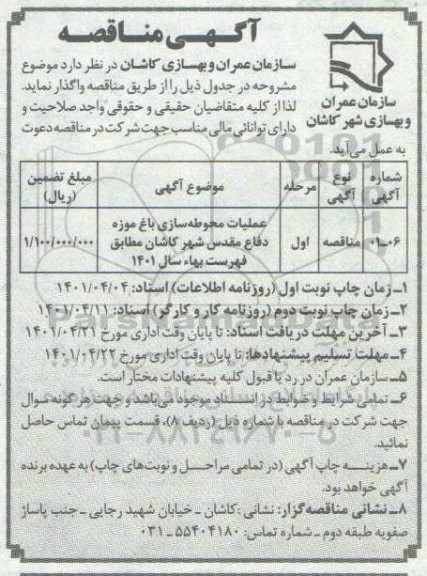 آگهی مناقصه
سازمان عمران و بهسازی شهر کاشان
سازمان عمران و بهسازی کاشان در نظر دارد موضوع
مشروحه در جدول ذیل را از طریق مناقصه واگذار نماید.
لذا از کلیه متقاضیان حقیقی و حقوقی واجد صلاحیت و
دارای توانائی مالی مناسب جهت شرکت در مناقصه دعوت
به عمل می‌آید.
شماره آگهی | نوع آگهی | مرحله | موضوع آگهی | مبلغ تضمین (ریال)
۰۶-۰۱ | مناقصه | اول | عملیات محوطه‌سازی باغ موزه دفاع مقدس شهر کاشان مطابق فهرست بهاء سال ۱۴۰۱ | ۱/۱۰۰/۰۰۰/۰۰۰
۱ـ زمان چاپ نوبت اول (روزنامه اطلاعات) اسناد: ۱۴۰۱/۰۴/۰۴
۲ـ زمان چاپ نوبت دوم (روزنامه کار و کارگر) اسناد: ۱۴۰۱/۰۴/۱۱
۳ـ آخرین مهلت دریافت اسناد: تا پایان وقت اداری مورخ ۱۴۰۱/۰۴/۲۱
۴ـ مهلت تسلیم پیشنهادها: تا پایان وقت اداری مورخ ۱۴۰۱/۰۴/۲۲
۵ـ سازمان عمران در رد یا قبول کلیه پیشنهادات مختار است.
۶ـ تمامی شرایط و ضوابط در اسناد موجود می‌باشد و جهت هر گونه سوال
جهت شرکت در مناقصه با شماره ذیل (ردیف ۸)، قسمت پیمان تماس حاصل
نمائید.
۷ـ هزینه چاپ آگهی (در تمامی مراحل و نوبت‌های چاپ) به عهده برنده
آگهی خواهد بود.
۸ـ نشانی مناقصه‌گزار: نشانی: کاشان ـ خیابان شهید رجایی ـ جنب پاساژ
صفویه طبقه دوم ـ شماره تماس: ۵۵۴۰۴۱۸۰ ـ ۰۳۱
۰۲۱-۸۸۳۴۹۶۷۰-۵